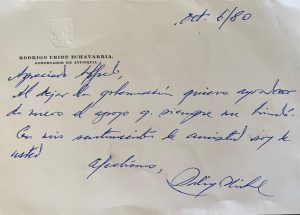 Oct. 6/80
RODRIGO URIBE ECHAVARRIA,
GOBERNADOR DE ANTIOQUIA
Apreciado
Al dejar la gobernación quiero agradecer
de nuevo el apoyo q. siempre me brindó.
Con mis sentimientos de amistad soy de
usted
afectísimo,